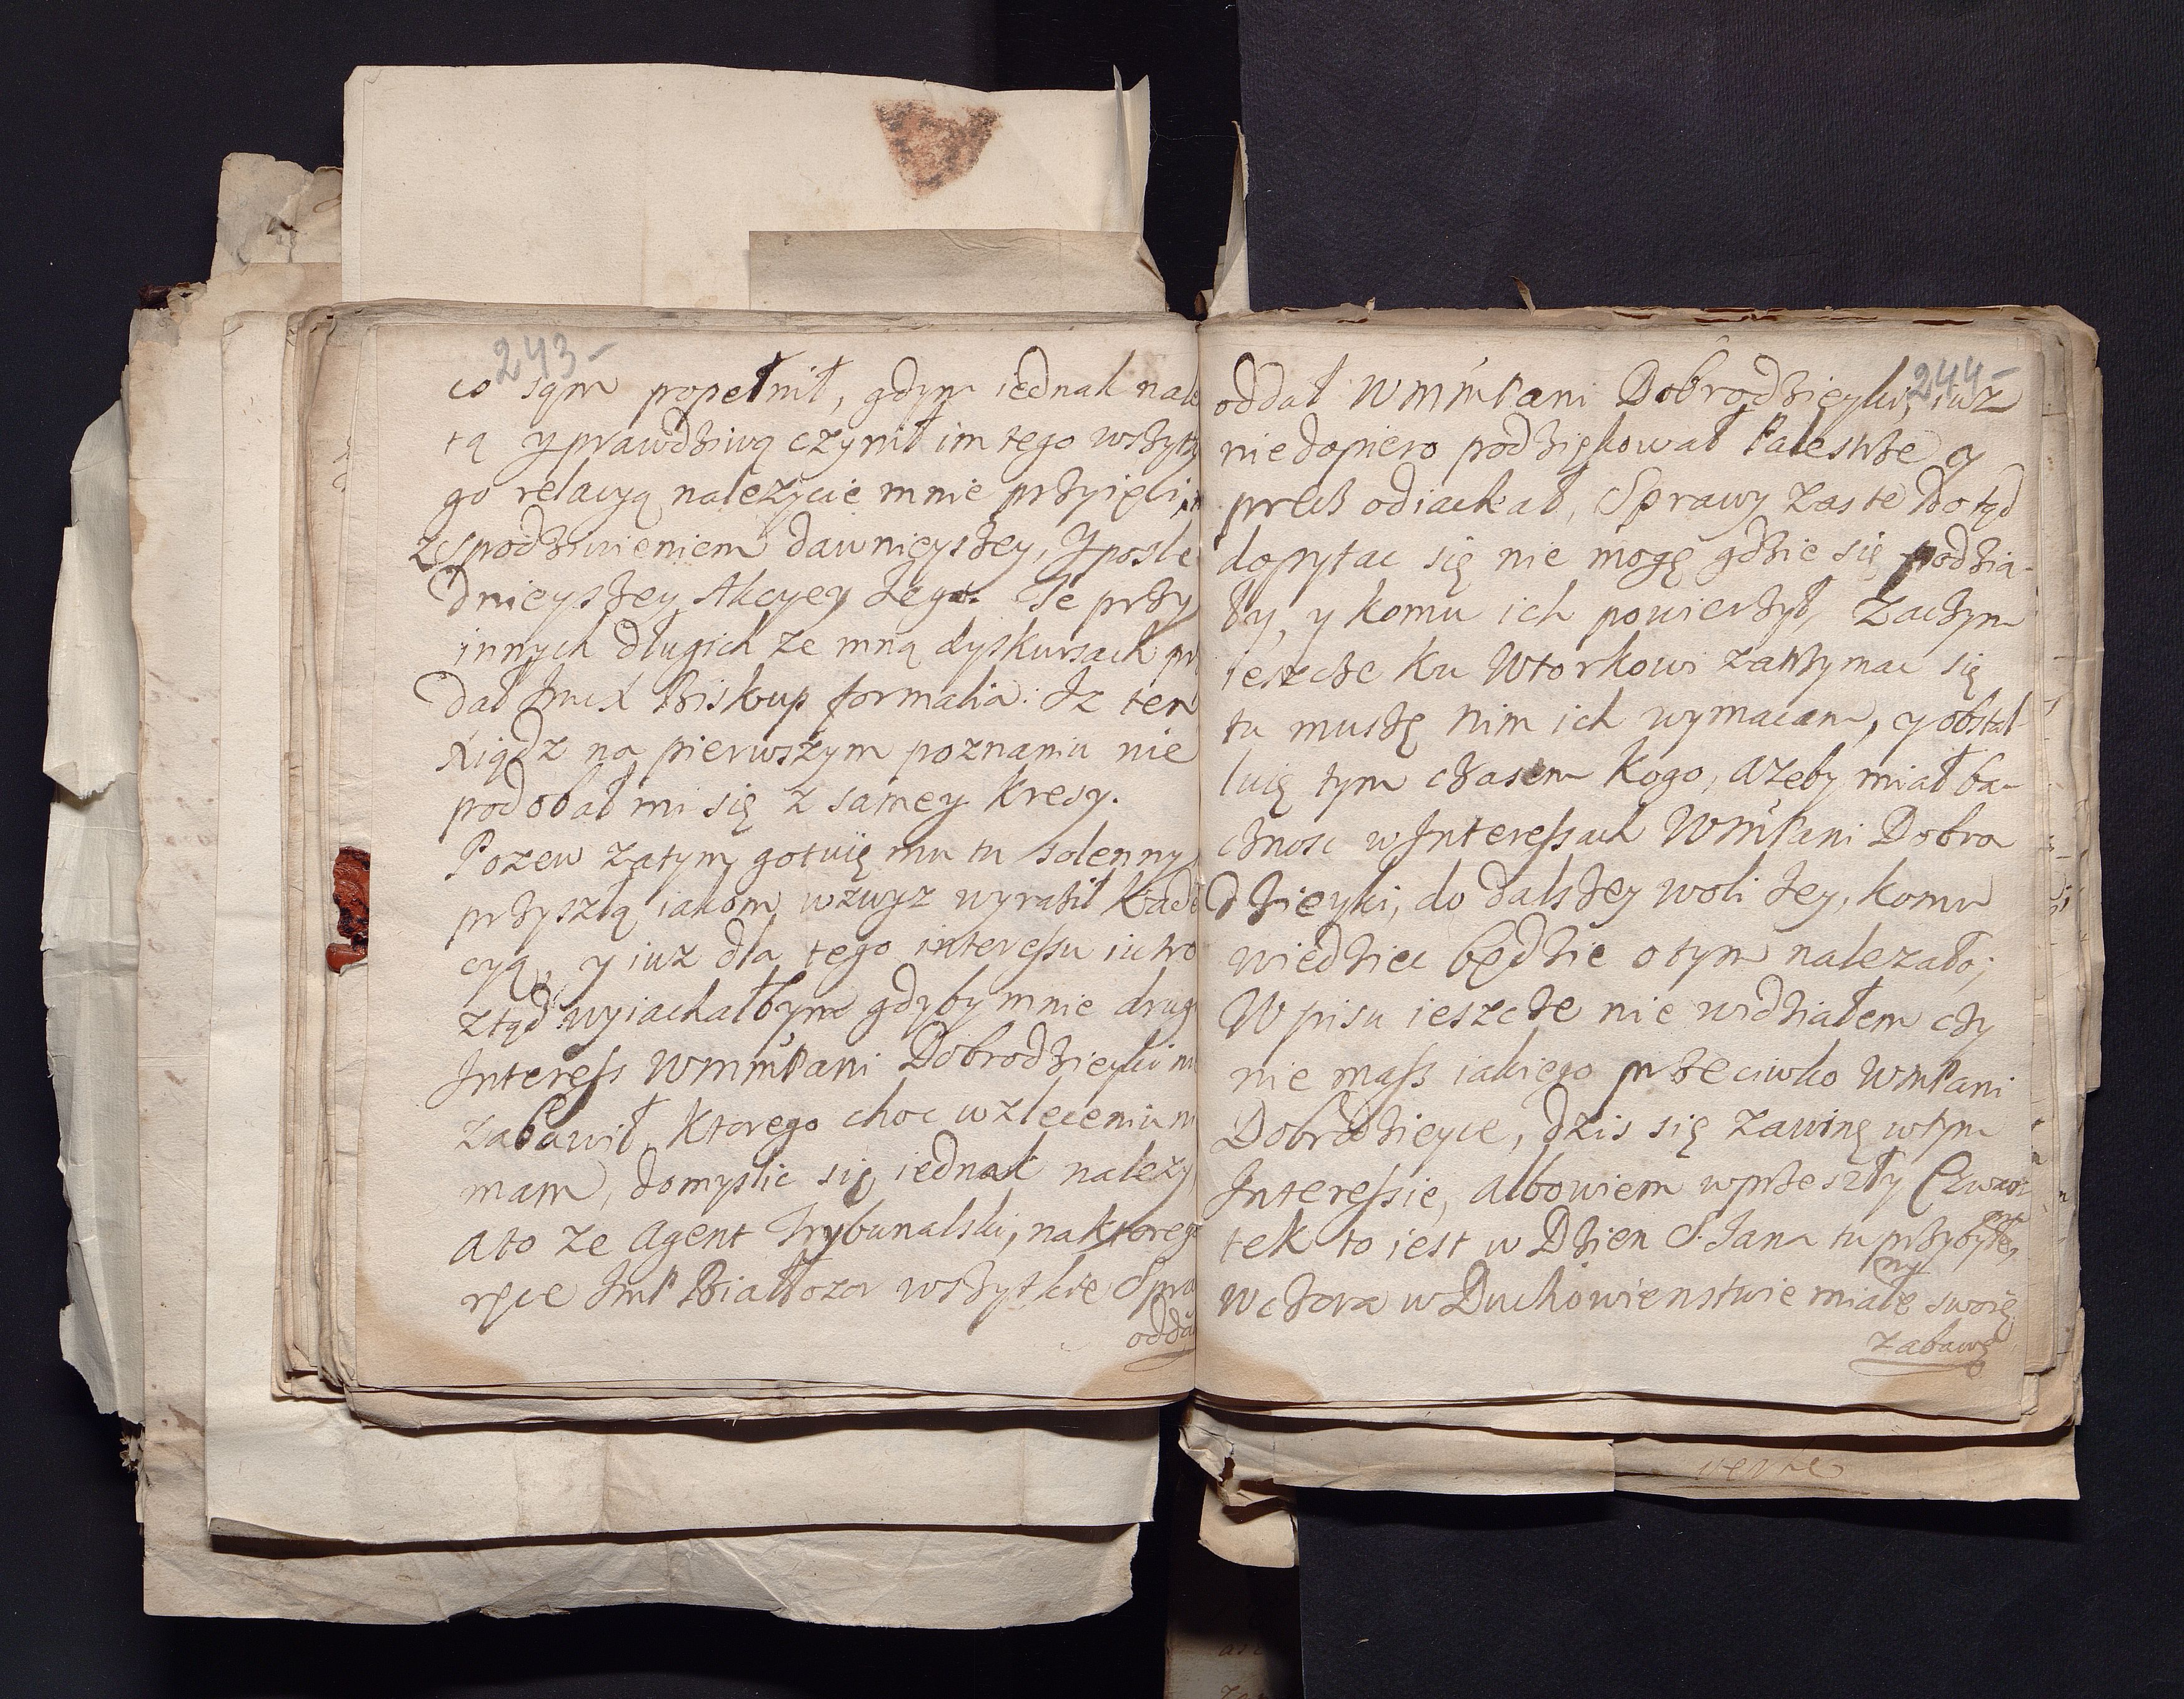 243-
co sąm popełnił, gdym iednak nale
tą y prawdziwą czynił im tego wszytk
go relacyą nalezycie mnie przyięli,
z spodziwieniem dawnieyszey, y posle
dnieyszey Akcyey Jego. Te przy
innych długich ze mną dyskursach pr
dał Jmċ X Biskup formalia: Iz ten
Xiądz na pierwszym poznaniu nie
podobał mi się z samey kresy.
Pozew zatym gotuię mu tu solenny
przyszłą iakom wzwyz wyraził Kade
cyą, y iuz dla tego interessu iutro
ztąd wyiachałbym gdyby mnie drug
Interess WMMPani Dobrodzieyki n
zabawił, Ktorego choc w zleceniu n
mam, domyslic się iednak nalezy,
a to ze Agent Trybunalski, na ktoreg
ręce JmP Białłozor wszytkie Spra
oddał
244-
oddał WMMPani Dobrodzieyki, iuz
nie dopiero podziękował Palestrze y
precz odiachał, Sprawy zas te dotąd
dopytac się nie mogę gdzie się podzia-
ły, y komu ich powierzył, zaczym
ieszcze Ku Wtorkowi zatrzymac się
tu muszę nim ich wymacam, y obstal-
luię tym czasem Kogo, azeby miał ba-
cznosc w Interessach WMMPani Dobro
dzieyki, do dalszey woli Jey, komu
wiedziec będzie o tym nalezało;
W pisu ieszcze nie widziałem czy
nie mass iakiego przeciwko WMPani
Dobrodzieyce, dzis się zawinę w tym
Interessie, albowiem w przeszły Czwar
tek to iest w Dzien S. Jana tu przybyłem,
Wczora w Duchowienstwie miałem swoię
zabawę